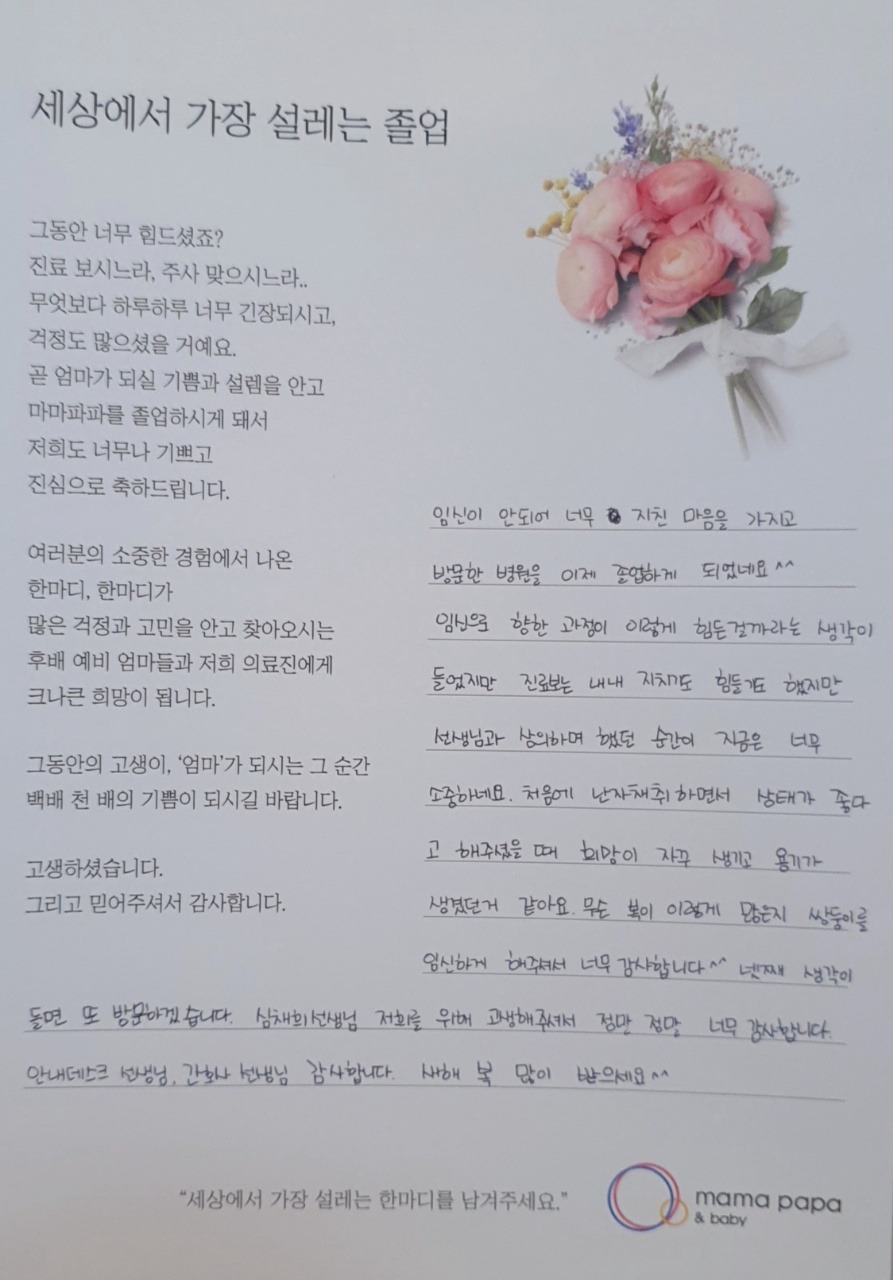 세상에서 가장 설레는 졸업
그동안 너무 힘드셨죠?
진료 보시느라, 주사 맞으시느라..
무엇보다 하루하루 너무 긴장되시고,
걱정도 많으셨을 거예요.
곧 엄마가 되실 기쁨과 설렘을 안고
마마파파를 졸업하시게 돼서
저희도 너무나 기쁘고
진심으로 축하드립니다.
여러분의 소중한 경험에서 나온
한마디, 한마디가
많은 걱정과 고민을 안고 찾아오시는
후배 예비 엄마들과 저희 의료진에게
크나큰 희망이 됩니다.
그동안의 고생이, ‘엄마’가 되시는 그 순간
백배 천 배의 기쁨이 되시길 바랍니다.
고생하셨습니다.
그리고 믿어주셔서 감사합니다.
임신이 안되어 너무 지친 마음을 가지고
방문한 병원을 이제 졸업하게 되었네요^^
임신으로 향한 과정이 이렇게 힘든걸까라는 생각이
들었지만 진료보는 내내 지치기도 힘들기도 했지만
선생님과 상의하며 했던 순간이 지금은 너무
소중하네요. 처음에 난자채취하면서 상태가 좋다
고 해주셨을 때 희망이 자꾸 생기고 용기가
생겼던거 같아요. 무슨 복이 이렇게 많은지 쌍둥이를
임신하게 해주셔서 너무 감사합니다^^ 넷째 생각이
들면 또 방문하겠습니다. 심채희선생님 저희를 위해 고생해주셔서 정말 정말 너무 감사합니다.
안내데스크 선생님, 간호사 선생님 감사합니다. 새해 복 많이 받으세요^^
“세상에서 가장 설레는 한마디를 남겨주세요.”
mama papa
& baby